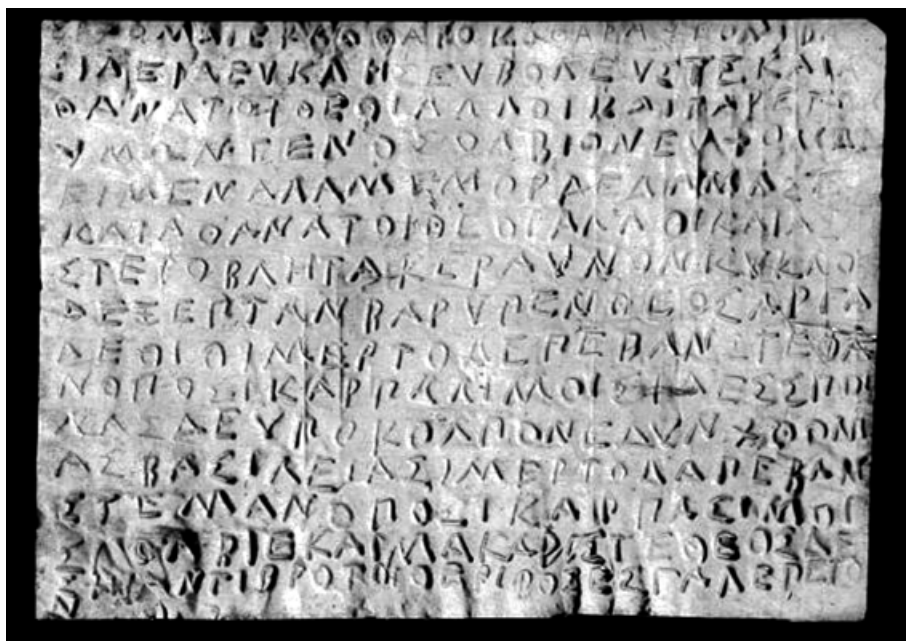 ΣΙΛΕΙΑΕΥΚΛΗΣΕΥΒΟΛΕΥΣΤΕΚΑΙΑ
ΘΑΝΑΤΟΙΘΕΟΙΑΛΛΟΙΚΑΙΓΑΡΕΓΟ
ΥΜΩΝΓΕΝΟΣΟΛΒΙΟΝΕΥΧΟΜΑΙ
ΕΙΜΕΝΑΛΑΜΕΜΟΡΑΕΔΑΜΑΣΕ
ΚΑΙΑΘΑΝΑΤΟΙΘΕΟΙΑΛΛΟΙΚΑΙΑΣ
ΣΤΕΡΟΒΛΗΤΑΚΕΡΑΥΝΟΝΚΥΚΛΟ
ΔΕΞΕΠΤΑΝΒΑΡΥΠΕΝΘΕΟΣΑΡΓΑ
ΛΕΟΙΟΙΜΕΡΤΟΔΕΠΕΒΑΝΣΤΕΦΑ
ΝΟΠΟΣΙΚΑΡΠΑΛΙΜΟΙΣΙΔΕΣΣΠΟΙ
ΝΑΣΔΕΥΠΟΚΟΛΠΟΝΕΔΥΝΧΘΟΝΙ
ΑΣΒΑΣΙΛΕΙΑΣΙΜΕΡΤΟΔΑΠΕΒΑΝ
ΣΤΕΜΑΝΟΠΟΣΙΚΑΡΠΑΣΙΜΟΙ
ΣΙΟΛΒΙΕΚΑΙΜΑΚΑΡΙΣΤΕΘΕΟΣΔΕ
ΣΗΙΑΝΤΙΒΡΟΤΟΙΟΕΡΙΦΟΣΕΣΓΑΛΕΠΕΤΟ
Ν